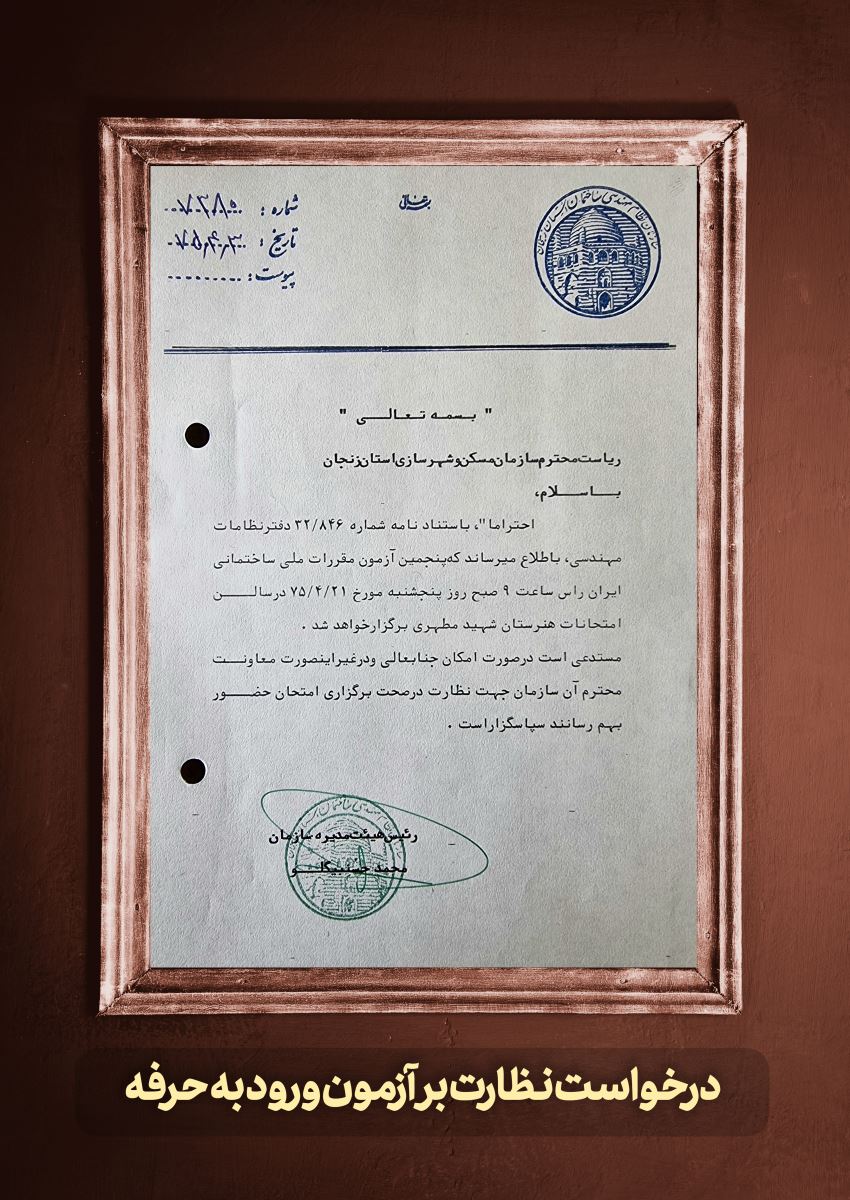 بسمه تعالی
سازمان نظام مهندسی ساختمان استان زنجان
شماره :
تاریخ :
پیوست : ..........
" بـسمـه تـعـالــی "
ریاست محترم سازمان مسکن و شهرسازی استان زنجان
بــاســلام،
احتراما"، باستناد نامه شماره ۳۲/۸۴۶ دفترنظامات
مهندسی، باطلاع میرساند که پنجمین آزمون مقررات ملی ساختمانی
ایران راس ساعت ۹ صبح روز پنجشنبه مورخ ۷۵/۴/۲۱ درسالــن
امتحانات هنرستان شهید مطهری برگزارخواهد شد .
مستدعی است درصورت امکان جنابعالی ودرغیراینصورت معاونــت
محترم آن سازمان جهت نظارت درصحت برگزاری امتحان حضــور
بهم رسانند سپاسگزاراست .
رئیس هیئت مدیره سازمان
محمد حسنبیگلــو
درخواست نظارت بر آزمون ورود به حرفه